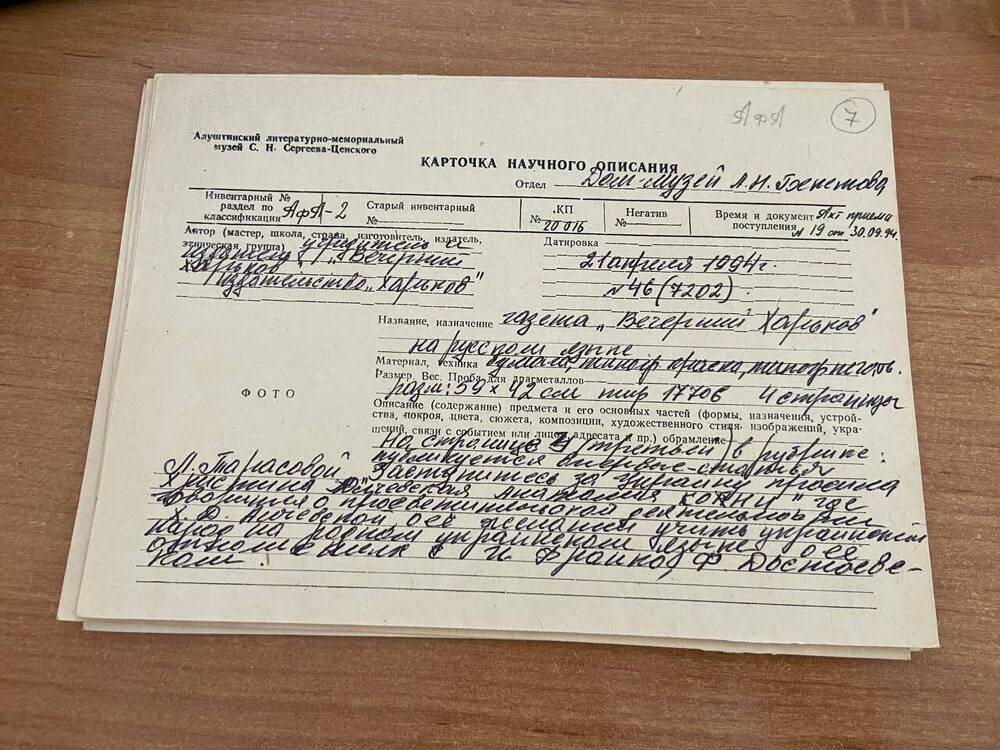 АфА 7
Алуштинский литературно-мемориальный
музей С. Н. Сергеева-Ценского
КАРТОЧКА НАУЧНОГО ОПИСАНИЯ
Отдел Дом-музей А.Н. Бекетова
Инвентарный №
раздел по
классификации АфА-2
Старый инвентарный
№
КП
№ 20016
Негатив
№
Время и документ Акт приема
поступления № 19 от 30.09.94.
Автор (мастер, школа, страна, изготовитель, издатель,
этническая группа) учредитель и
издатель „Вечерний
Харьков"
Издательство „Харьков"
Датировка
21 апреля 1994 г.
№ 46 (7202)
Название, назначение газета „Вечерний Харьков"
на русском языке
Материал, техника бумага, типогр. краска, типогр. печать.
Размер. Вес. Проба для драгметаллов
разм: 59 × 42 см тир 17706 4 страницы
ФОТО
Описание (содержание) предмета и его основных частей (формы, назначения, устрой-
ства, покроя, цвета, сюжета, композиции, художественного стиля, изображений, укра-
шений, связи с событием или лицо, адресата и пр.) обрамление
На странице 3 (третьей) в рубрике:
публикуется впервые - статья
Л. Тарасовой „Заступитесь за Украину просила
Христина Алчевская где
говорится о просветительской деятельности
Х.Д. Алчевской, её желании учить украинский
народ на родном украинском языке, о её
отношениях с И Франко, Ф Достоевс-
ким.